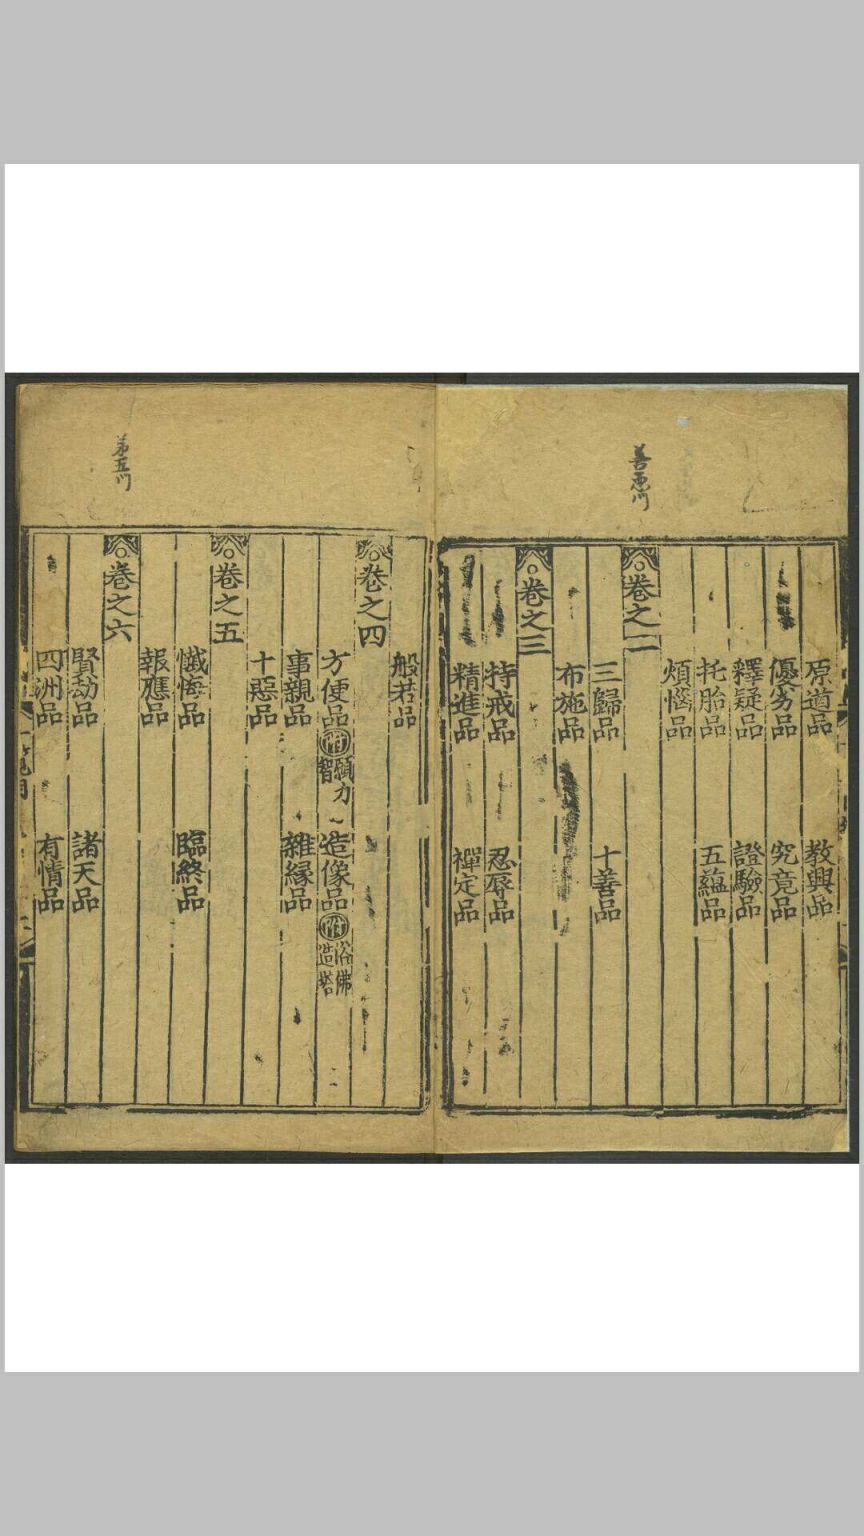 原道品　教興品
優劣品　究竟品
釋疑品　證驗品
托胎品　五蘊品
煩惱品
卷之二
三歸品　十善品
布施品
卷之三
持戒品　忍辱品
精進品　禪定品
般若品
卷之四
方便品 附 願力 智　造像品 附 浴佛 造塔
事親品　雜緣品
十惡品
卷之五
懺悔品　臨終品
報應品
卷之六
賢劫品　諸天品
四洲品　有情品
第五门